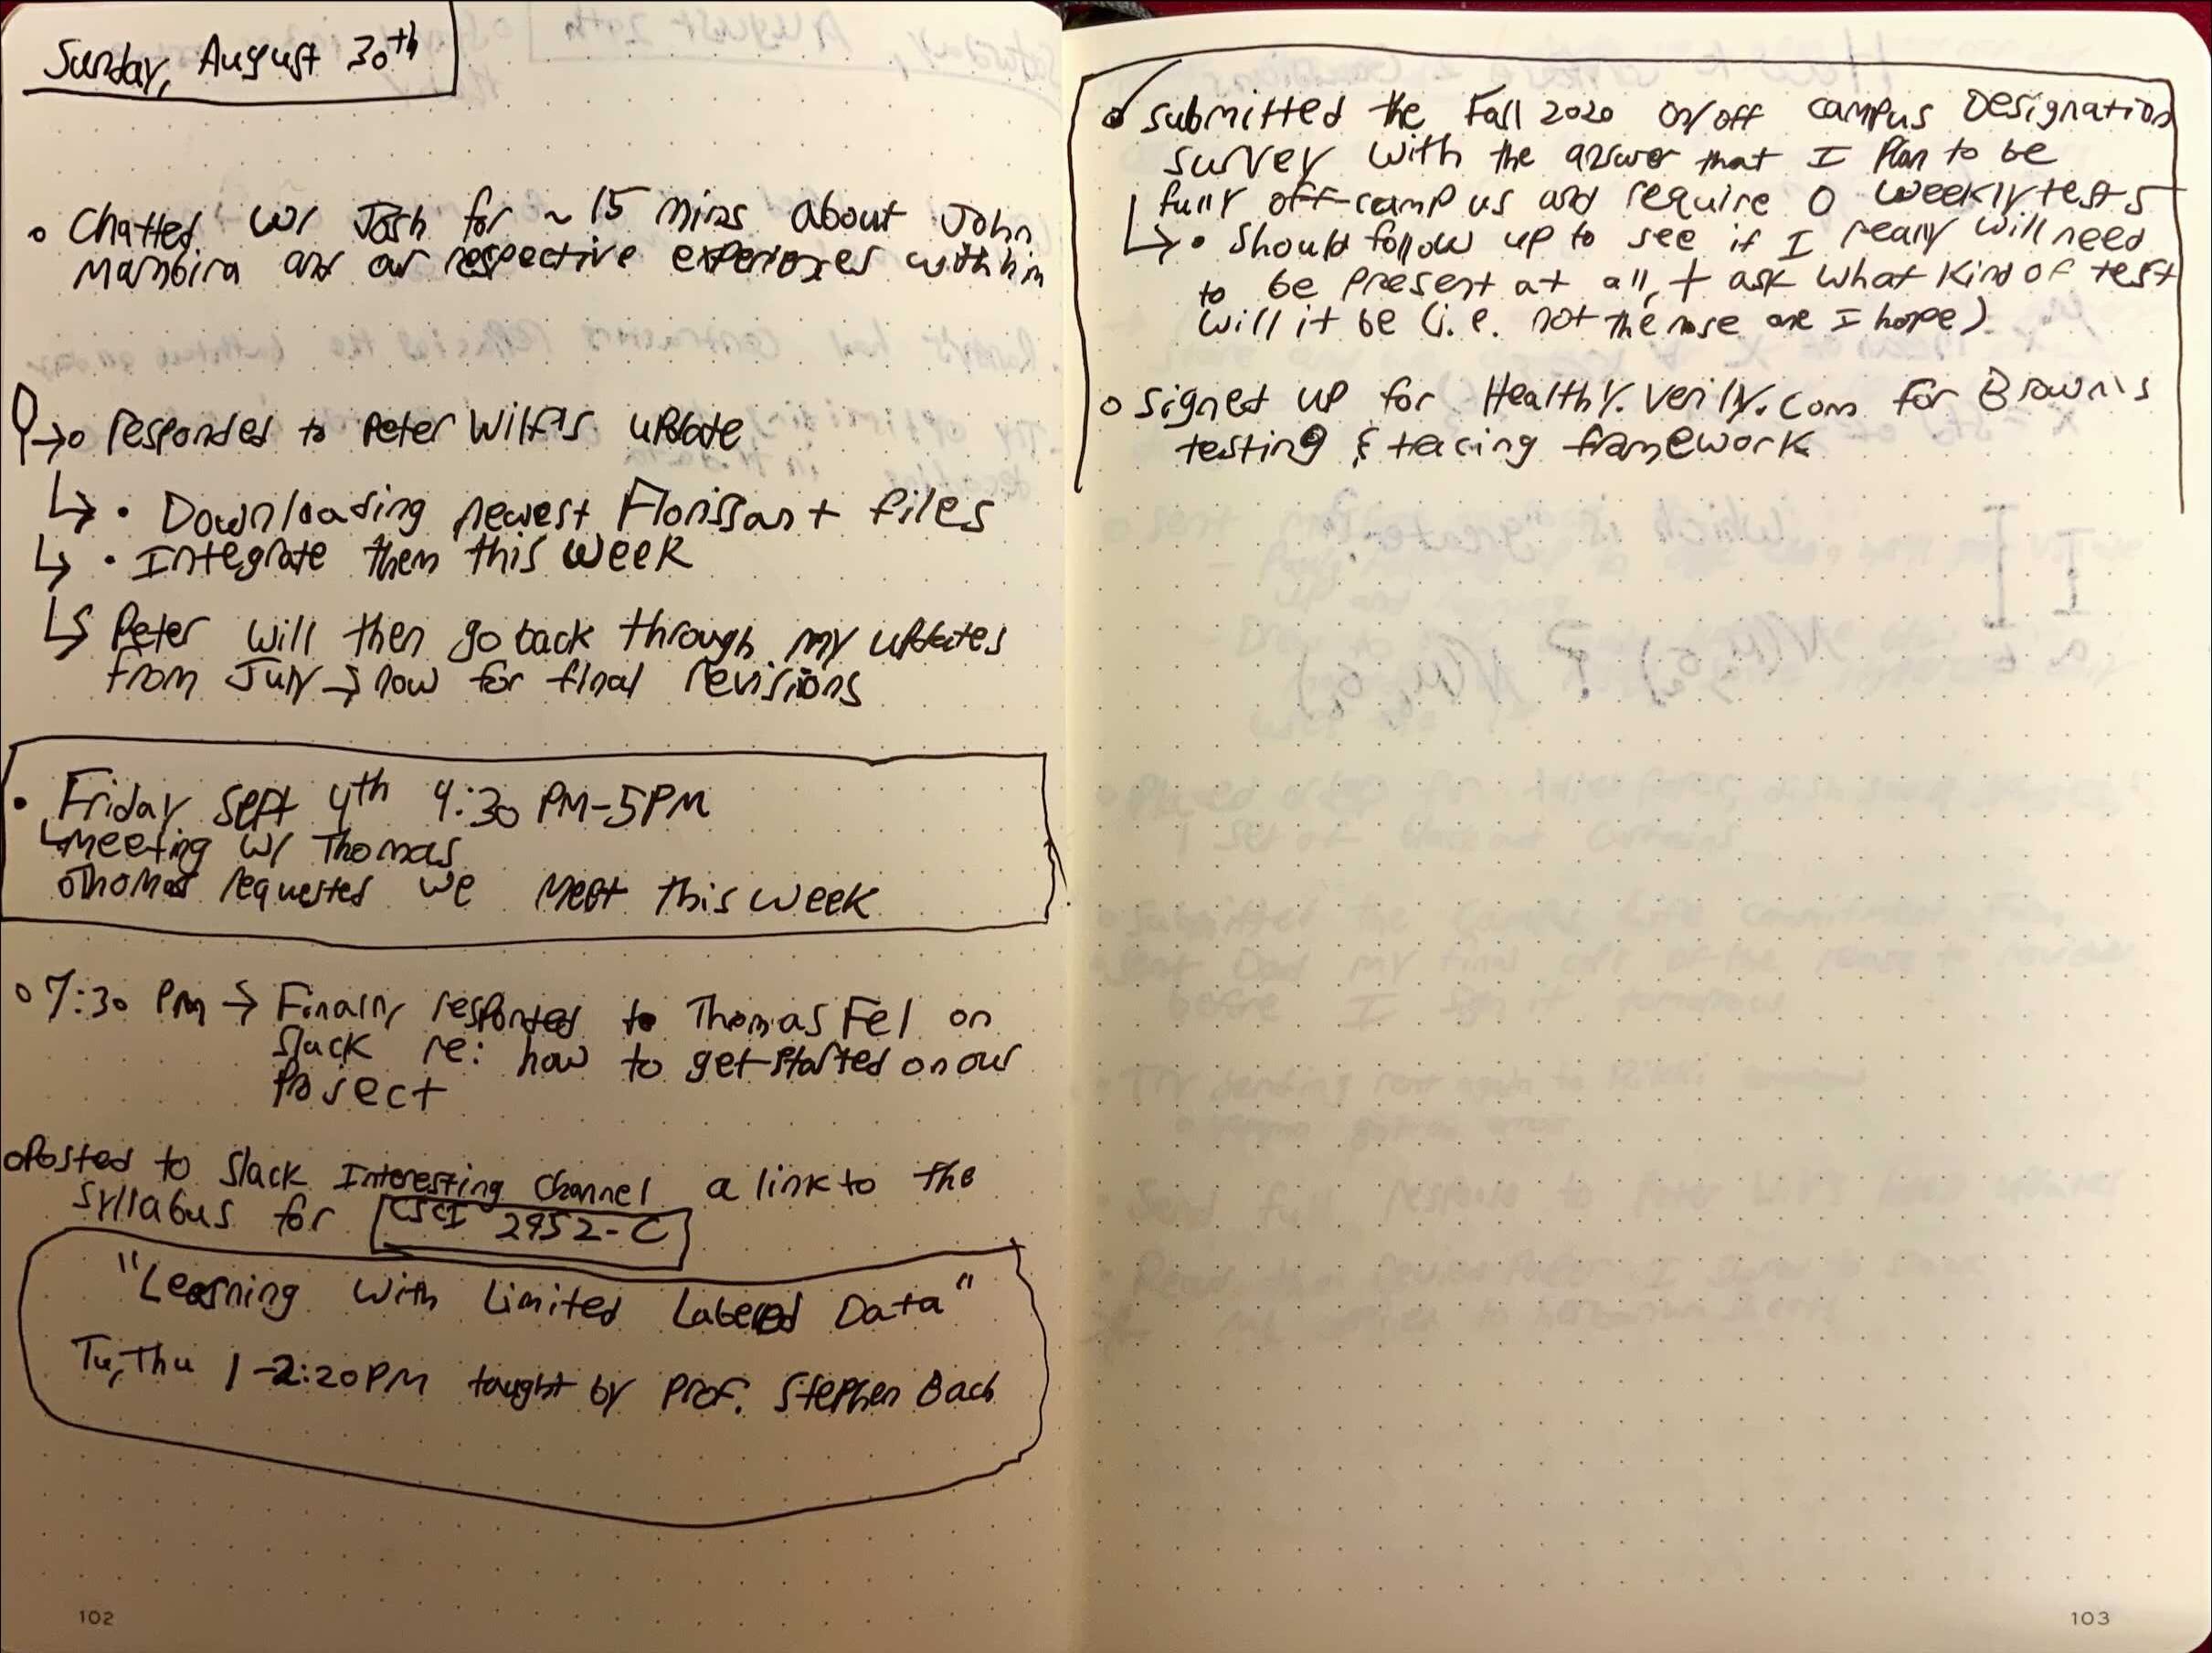 Sunday, August 30th
Chatted w/ Josh for ~15 mins about John
Mambira and our respective experiences with him
→ responded to Peter Wilf's update
↳ • Downloading newest Florissant files
↳ • Integrate them this week
↳ Peter will then go back through my updates
from July → now for final revisions
• Friday Sept 4th 4:30 PM-5PM
↳ Meeting w/ Thomas
Thomas requested we meet this week
7:30 PM → Finally responded to Thomas Fel on
Slack re: how to get started on our
Project
Posted to Slack Interesting Channel a link to the
syllabus for CSCI 2952-C
"Learning with Limited Labeled Data"
Tu, Thu 1-2:20PM taught by Prof. Stephen Bach
102
Submitted the Fall 2020 on/off campus Designation
survey with the answer that I plan to be
fully off-campus and require 0 weekly tests
↳ • Should follow up to see if I really will need
to be present at all, + ask what kind of test
will it be (i.e. not the nose one I hope)
Signed up for Healthy.verily.com for Brown's
testing & tracing framework
103